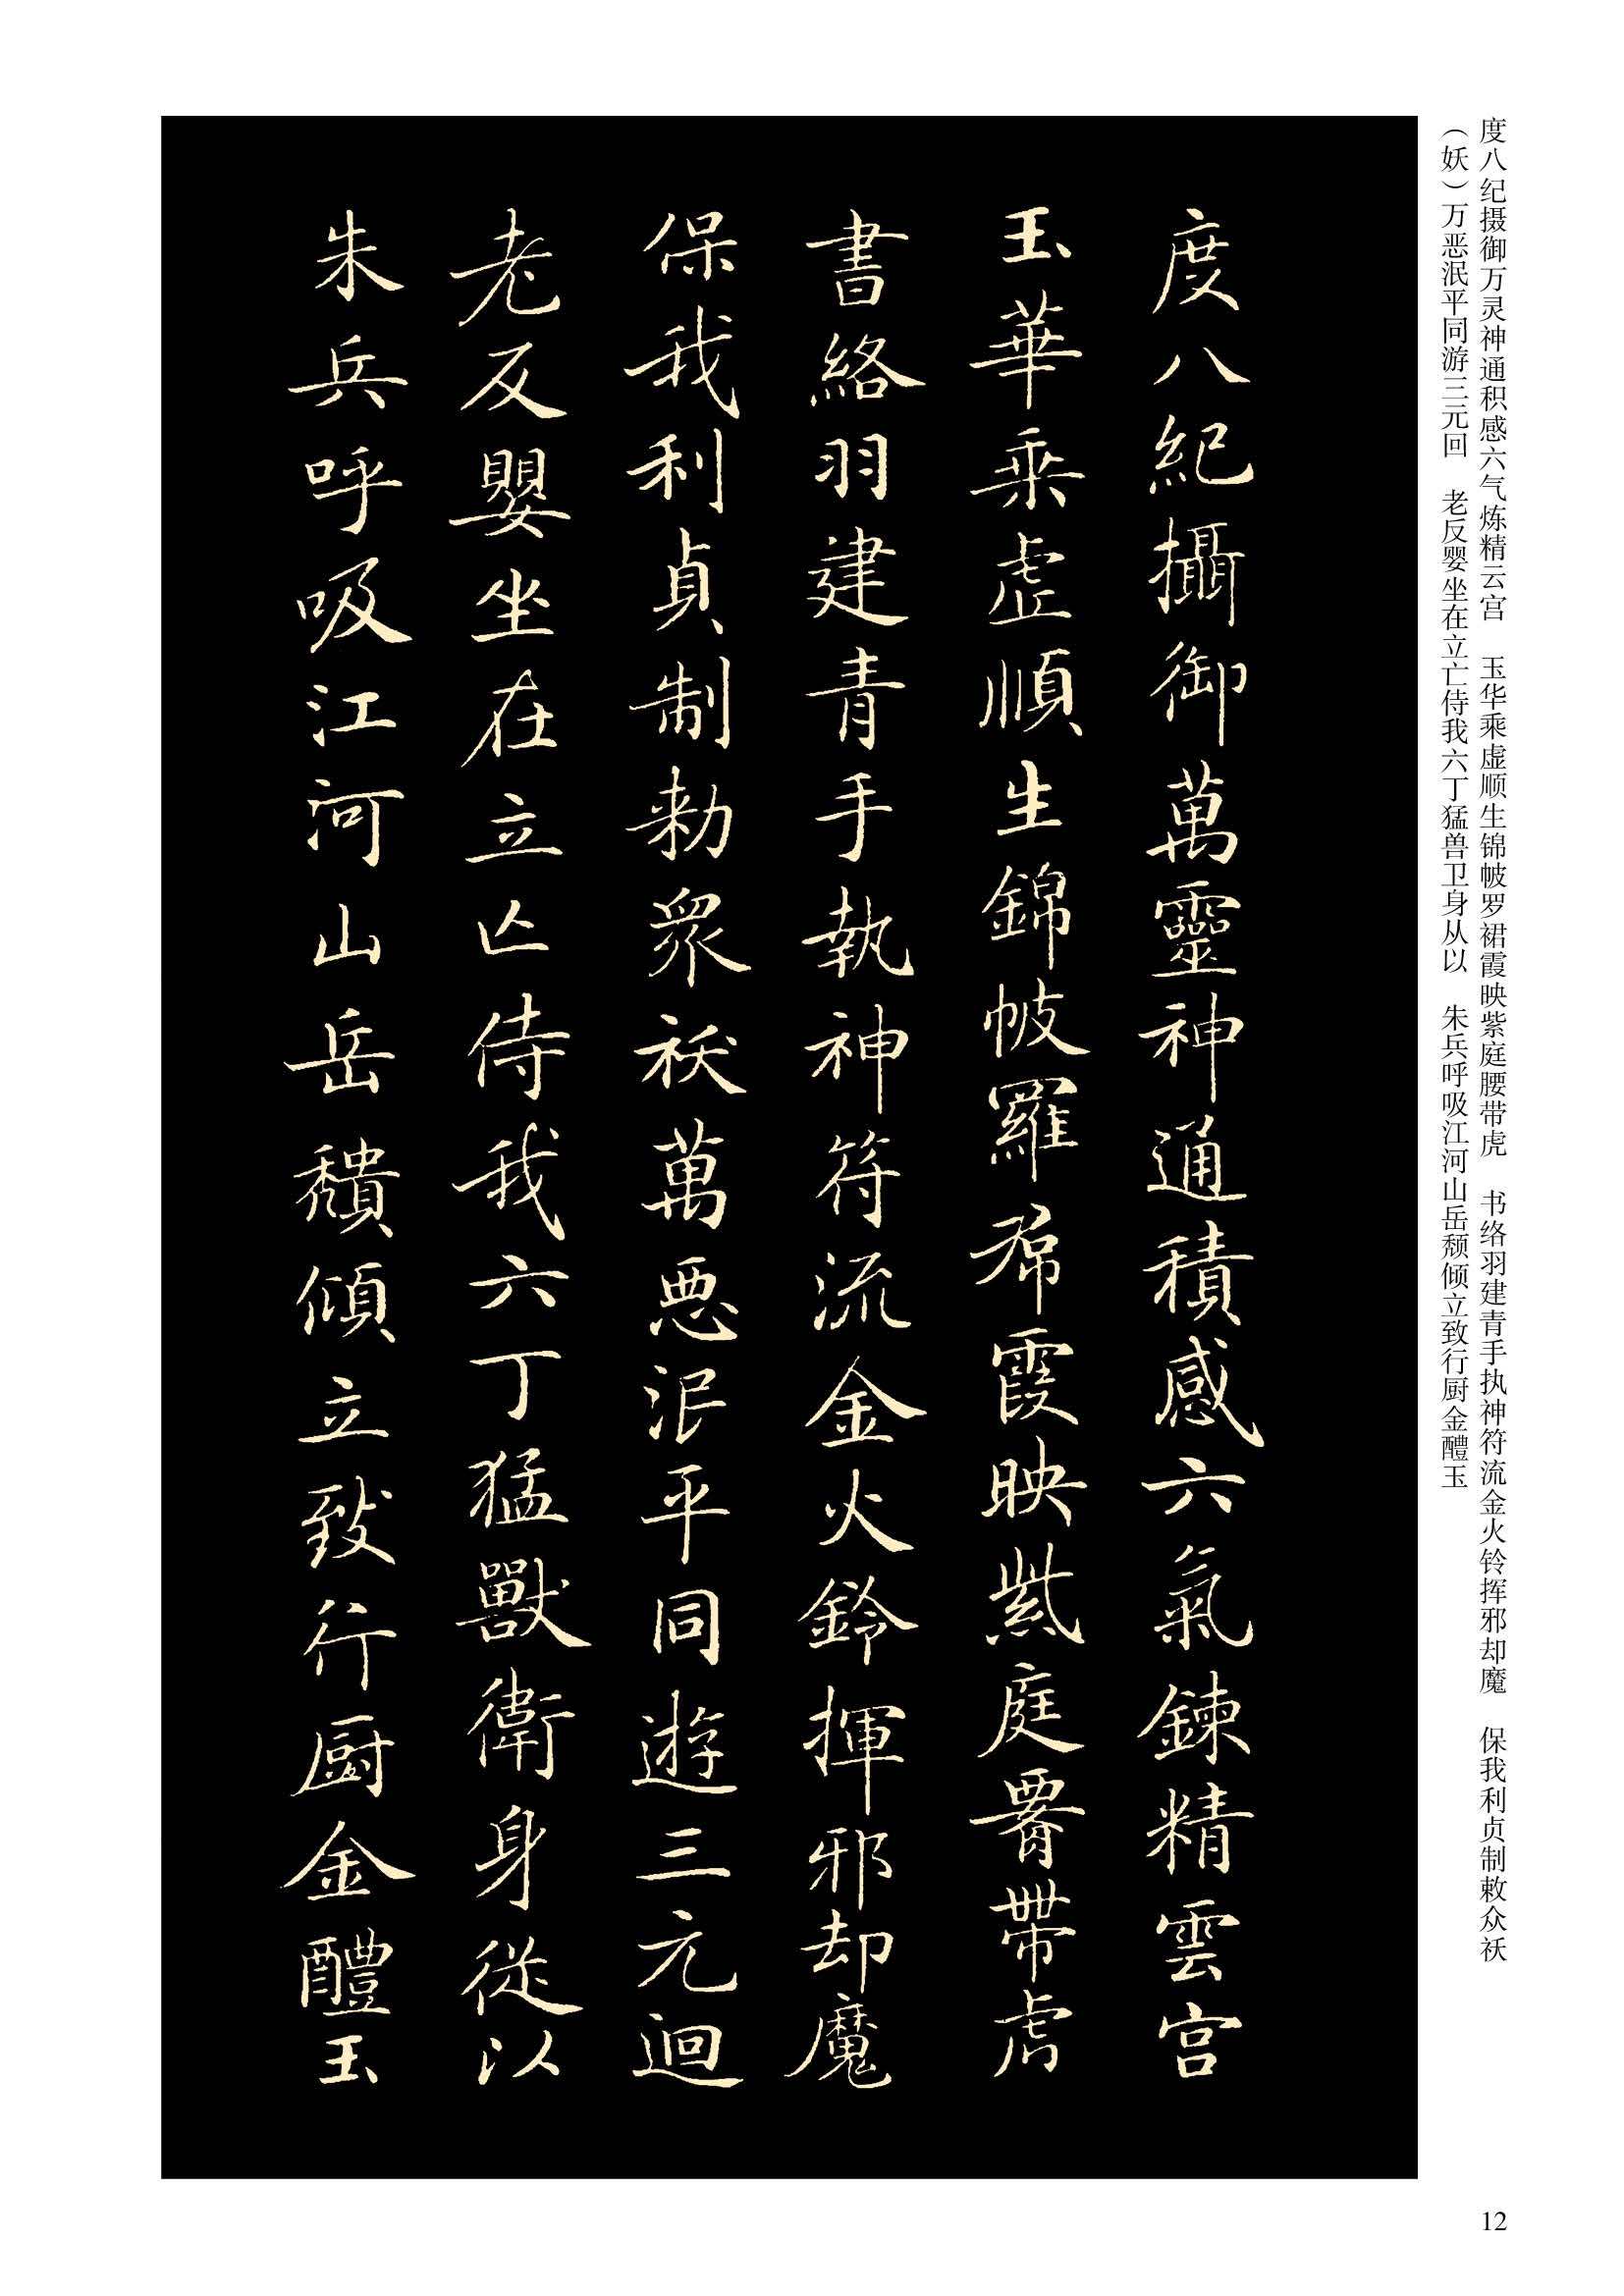 度八纪摄御万灵神通积感六气炼精云宫　玉华乘虚顺生锦帔罗裙霞映紫庭腰带虎　书络羽建青手执神符流金火铃挥邪却魔　保我利贞制敕众祆
（妖）万恶泯平同游三元回　老反婴坐在立亡侍我六丁猛兽卫身从以　朱兵呼吸江河山岳颓倾立致行厨金醴玉
度八紀攝御萬靈神通積感六氣鍊精雲宮
玉華乘虛順生錦帔羅帬霞映紫庭腰帶虎
書絡羽建青手執神符流金火鈴揮邪却魔
保我利貞制勑眾祆萬惡泯平同遊三元迴
老反嬰坐在立亡侍我六丁猛獸衛身從以
朱兵呼吸江河山岳穨傾立致行厨金醴玉
12